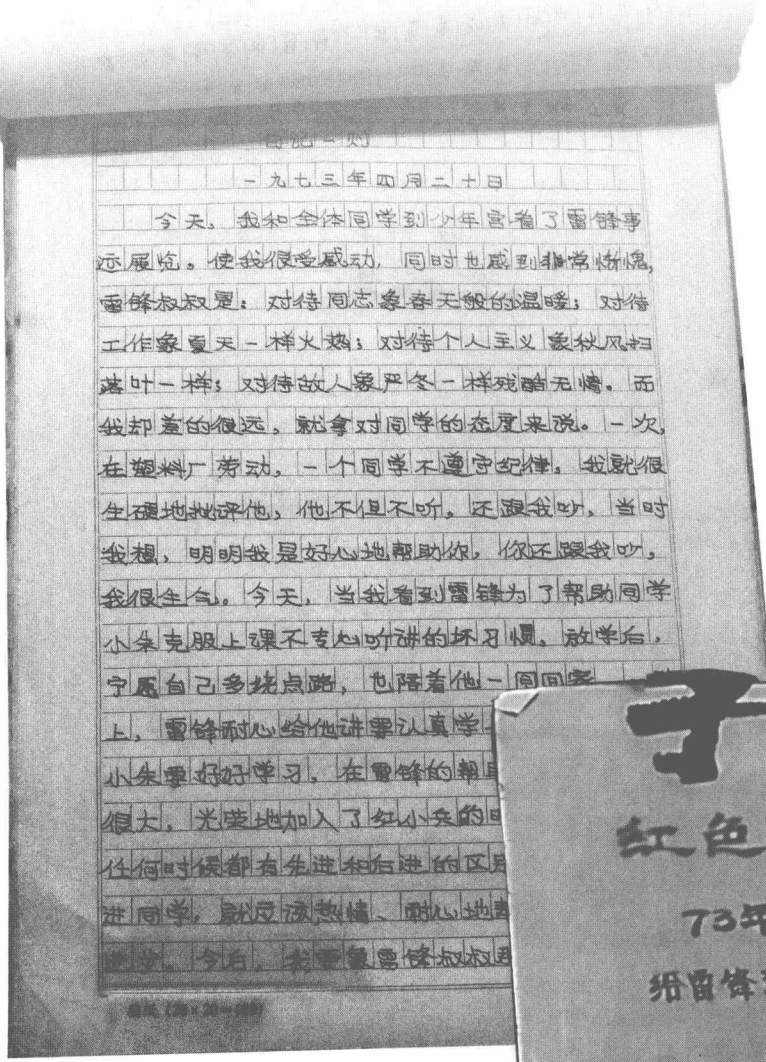 日记一则
一九七三年四月二十日
今天，我和全体同学到少年宫看了雷锋事
迹展览。使我很受感动，同时也感到非常惭愧，
雷锋叔叔是：对待同志象春天般的温暖；对待
工作象夏天一样火热；对待个人主义象秋风扫
落叶一样；对待敌人象严冬一样残酷无情。而
我却差的很远，就拿对同学的态度来说。一次，
在塑料厂劳动，一个同学不遵守纪律。我就很
生硬地批评他，他不但不听，还跟我吵，当时
我想，明明我是好心地帮助你，你还跟我吵，
我很生气。今天，当我看到雷锋为了帮助同学
小朱克服上课不专心听讲的坏习惯。放学后，
宁愿自己多绕点路，也陪着他一同回家
上，雷锋耐心给他讲要认真学
小朱要好好学习，在雷锋的帮
很大，光荣地加入了红小兵的
任何时候都有先进和后进的区
进同学，就应该热情、耐心地
进步。今后，我要象雷锋叔叔
红色
73年
给雷锋